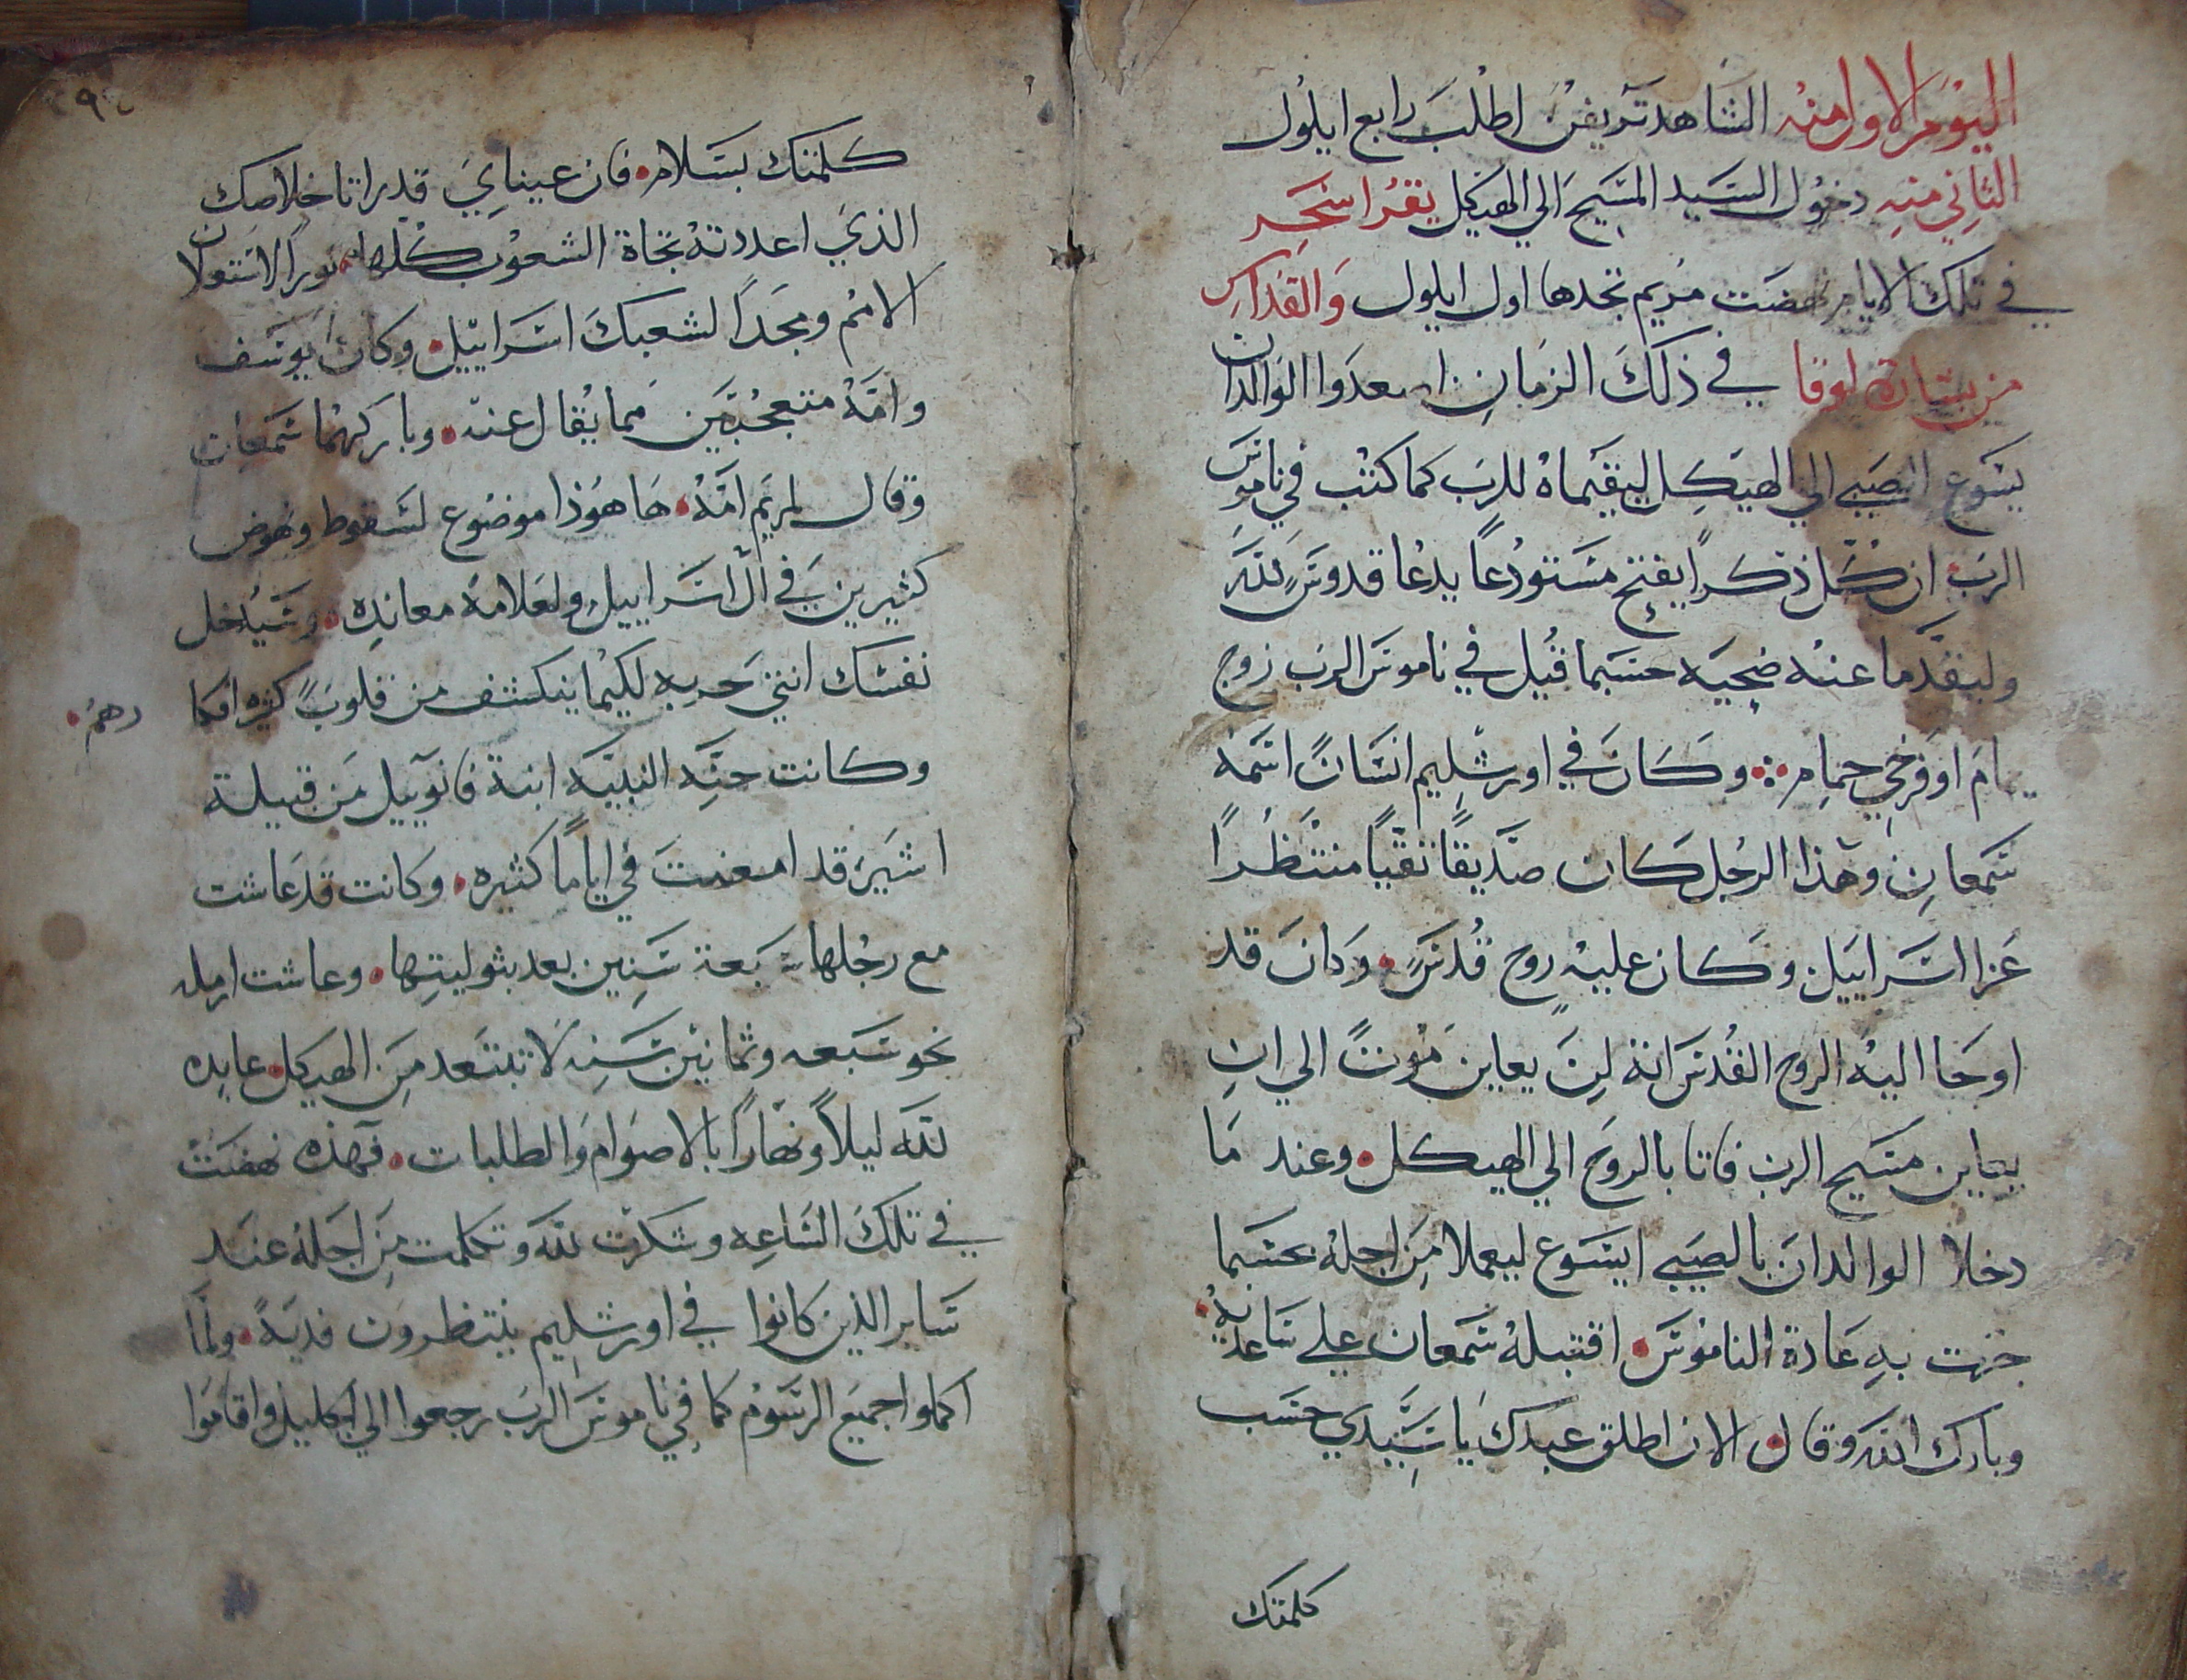 اليوم الاول منه الشاهد تريفن اطلب رابع ايلول
الثاني منه دخول السيد المسيح الي الهيكل يقرا سَحَر
في تلك الايام نهضت مريم تجدها اول ايلول والقداس
من بشارة لوقا في ذلك الزمان اصعدوا الوالدان
يسوع الصبي الي الهيكل ليقيماه للرب كما كتب في ناموس
الرب ان كل ذكرًا يفتح مستودعًا يدعا قدوس لله
وليقدما عنه ضحيه حسبما قيل في ناموس الرب زوج
يمام او فرخي حمام وكان في اورشليم انسانً اسمه
سمعان وهذا الرجل كان صديقًا تقيًا منتظرًا
عزا اسراييل وكان عليه روح قدس وكان قد
اوحا اليه الروح القدس انه لن يعاين موتً الي ان
يعاين مسيح الرب فاتا بالروح الي الهيكل وعند ما
دخلا الوالدان بالصبي ايسوع ليعملا من اجله بحسبما
جرت به عادة الناموس اقتبله سمعان علي ساعديه
وبارك الله وقال الان اطلق عبدك يا سيدي حسب
كلمتك
٢٩
كلمتك بسلام فان عيناي قد راتا خلاصك
الذي اعددته تجاة الشعوب كلها نورًا لاستعلان
الامم ومجدًا لشعبك اسراييل وكان يوسف
وامه متعجبين مما يقال عنه وباركهما سمعان
وقال لمريم امه ها هوذا موضوع لسقوط ونهوض
كثيرين في ال اسراييل ولعلامة معانده وسيدخل
نفسك انتي حربه لكيما ينكشف من قلوبً كثيره افكا
رهم
وكانت حنه النبيه ابنة فانوييل من قبيلة
اشير قد امعنت في ايامًا كثيره وكانت قد عاشت
مع رجلها سبعة سنين بعد بثوليتها وعاشت ارمله
نحو سبعه وثمانين سنه لا تبتعد من الهيكل عابده
لله ليلاً ونهارًا بالاصوام والطلبات فهذه نهضت
في تلك الساعه وشكرت لله وتكلمت من اجله عند
ساير الذين كانوا في اورشليم ينتظرون فديةً ولما
اكملوا جميع الرسوم كما في ناموس الرب رجعوا الي الجليل واقاموا